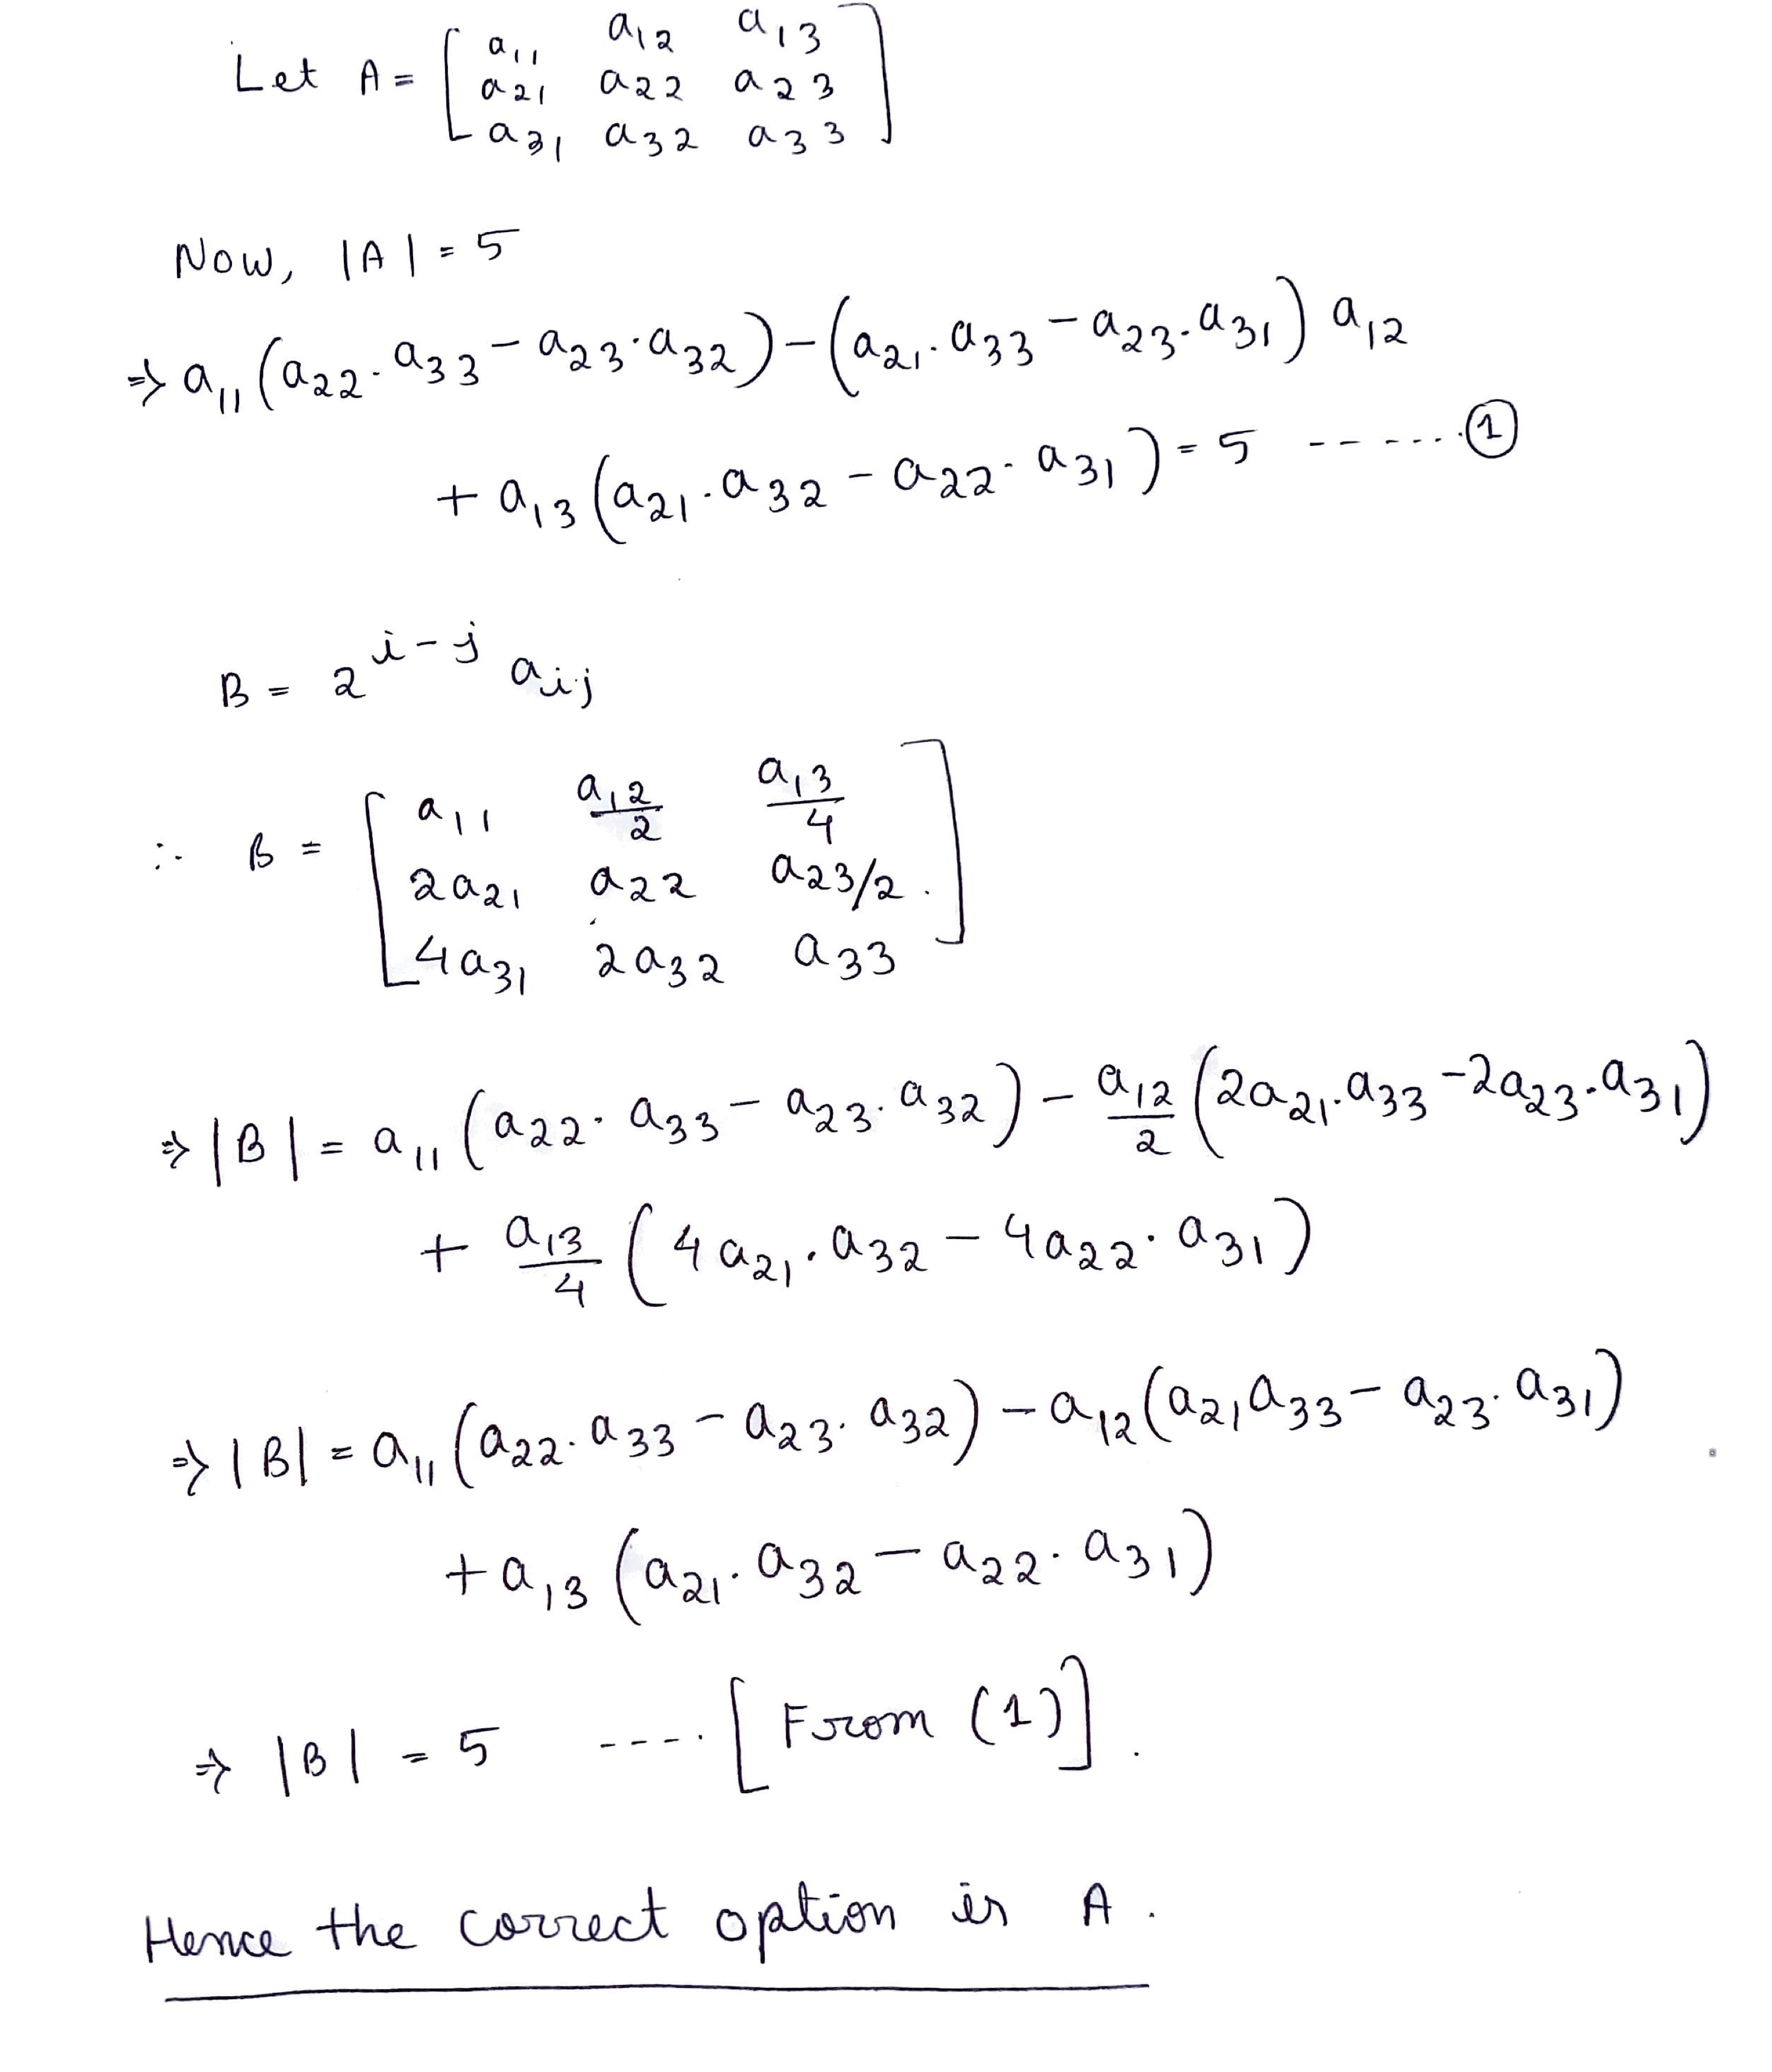 Let A = [ a11 a12 a13
a21 a22 a23
a31 a32 a33 ]
Now, |A| = 5
⇒ a11 (a22 . a33 - a23 . a32) - (a21 . a33 - a23 . a31) a12
+ a13 (a21 . a32 - a22 . a31) = 5 ------- ①
B = 2^(i-j) aij
∴ B = [ a11 a12/2 a13/4
2a21 a22 a23/2
4a31 2a32 a33 ]
⇒ |B| = a11 (a22 . a33 - a23 . a32) - a12/2 (2a21 . a33 - 2a23 . a31)
+ a13/4 (4a21 . a32 - 4a22 . a31)
⇒ |B| = a11 (a22 . a33 - a23 . a32) - a12 (a21 a33 - a23 . a31)
+ a13 (a21 . a32 - a22 . a31)
⇒ |B| = 5 ----. [From (1)].
Hence the correct option is A.